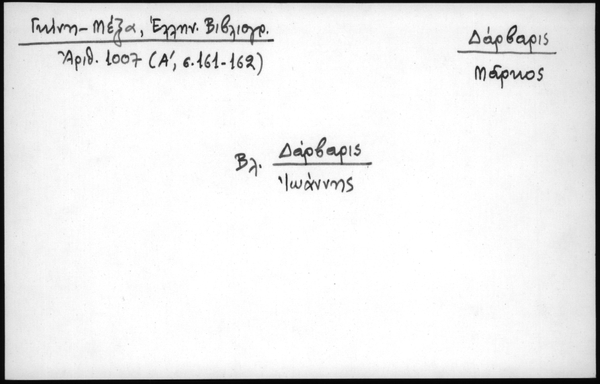 Γκίνη-Μέξα, Ἑλλην. Βιβλιογρ.
Ἀριθ. 1007 (Α', σ. 161-162)
Δάρβαρις
Μάρκος
Βλ. Δάρβαρις
Ἰωάννης